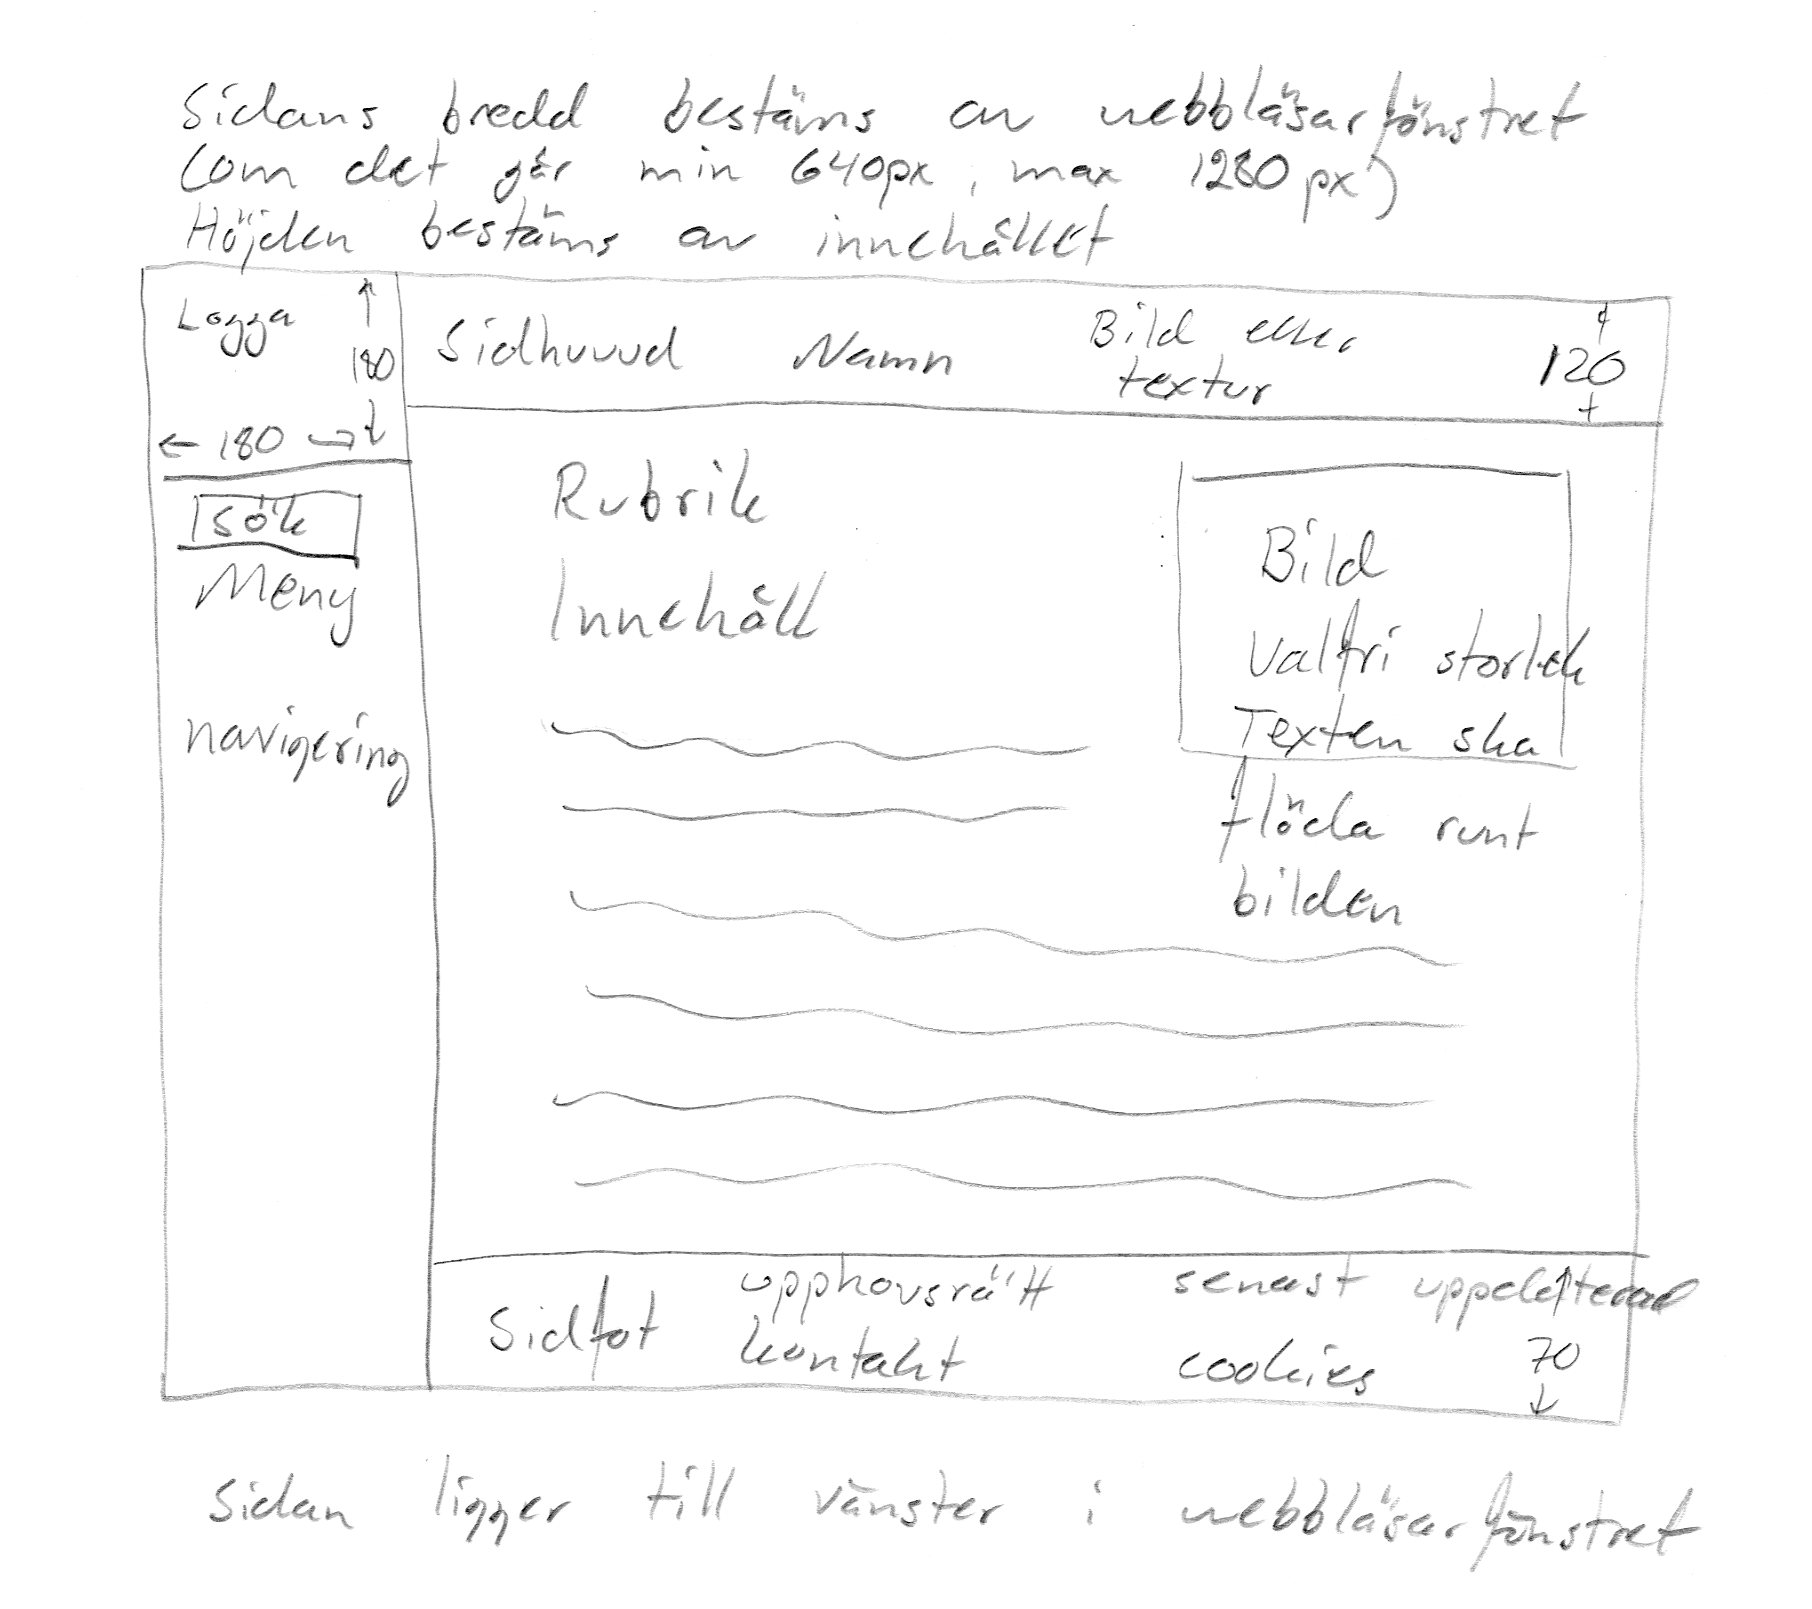 Sidans bredd bestäms av webbläsarfönstret
(om det går min 640px, max 1280px)
Höjden bestäms av innehållet
Logga
180
← 180 →
Sidhuvud Namn
Bild eller
textur
120
Sök
Meny
navigering
Rubrik
Innehåll
Bild
Valfri storlek
Texten ska
flöda runt
bilden
Sidfot
upphovsrätt
kontakt
senast uppdaterad
cookies
70
Sidan ligger till vänster i webbläsarfönstret